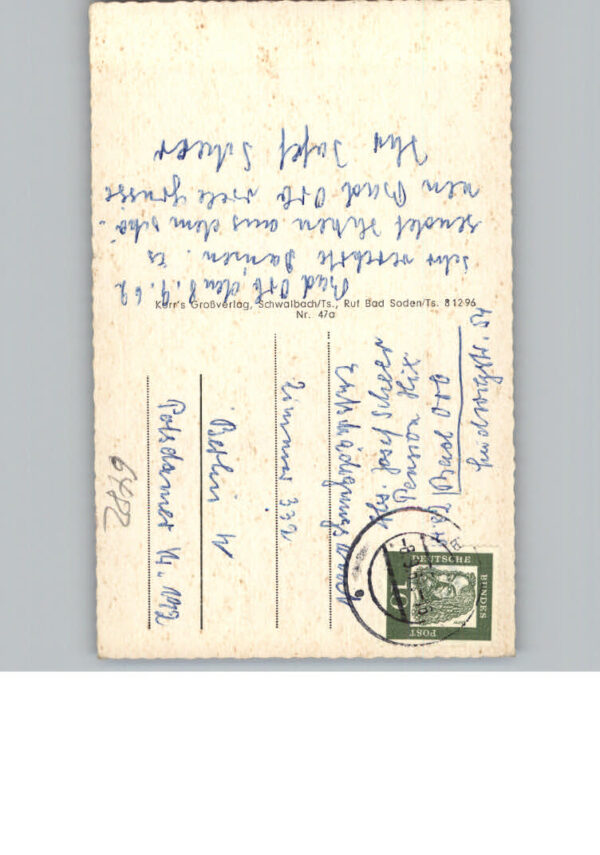 Bad Orb, den 8.9.62
Sehr verehrte Damen. Es
sendet Ihnen aus dem schö-
nen Bad Orb viele Grüsse
Ihr Josef Scheer
Kerr's Großverlag, Schwalbach/Ts., Ruf Bad Soden/Ts. 81296
Nr. 47a
Abs. Josef Scheer
Pension Hix
Bad Orb
Ludwigstr. 54
Entschädigungsamt
Zimmer 332
Berlin W
Potsdamer
DEUTSCHE
BUNDES
POST
10